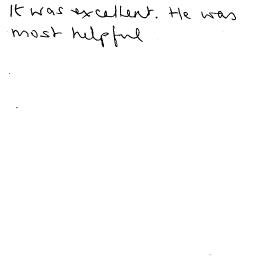 It was excellent. He was
most helpful